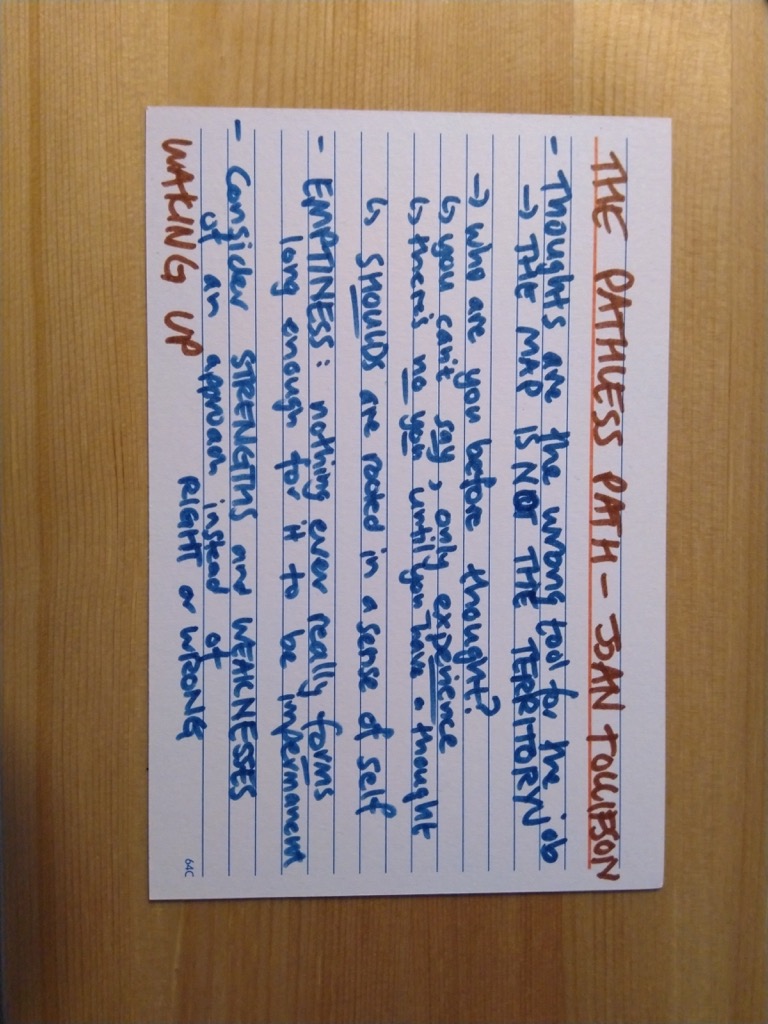 THE PATHLESS PATH - JOAN TOLLIFSON
- Thoughts are the wrong tool for the job
→ THE MAP IS NOT THE TERRITORY
→ who are you before thought?
↳ you can't say, only experience
↳ there's no you until you have a thought
↳ SHOULDS are rooted in a sense of self
- EMPTINESS: nothing ever really forms
long enough for it to be impermanent
- Consider STRENGTHS and WEAKNESSES
of an approach instead of
RIGHT or WRONG
WAKING UP
64C